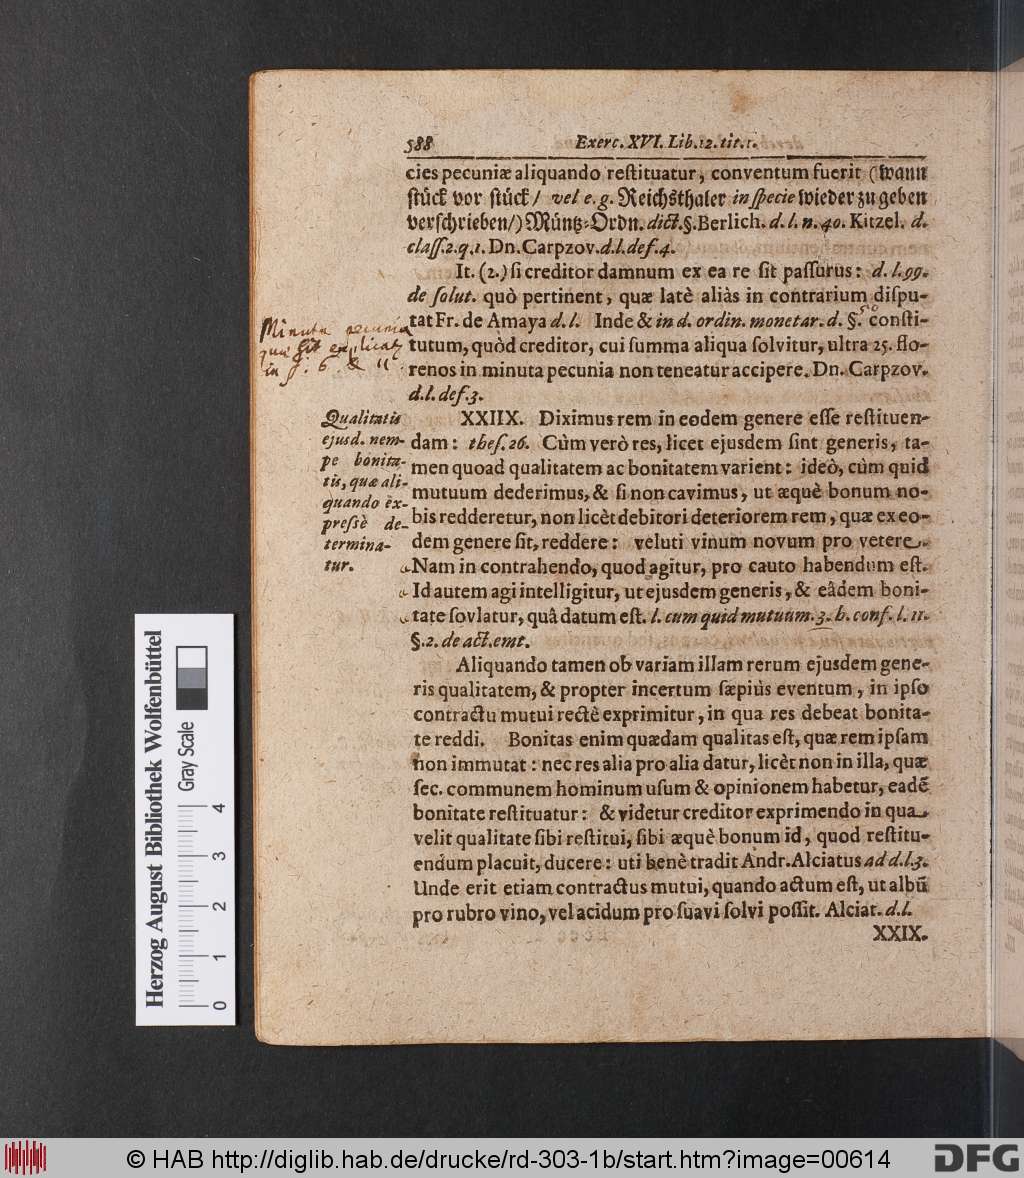 588 Exerc. XVI. Lib. 12. tit. 1.
cies pecuniæ aliquando reſtituatur, conventum fuerit (wann
ſtück vor ſtück/ vel e. g. Reichsthaler in ſpecie wieder zu geben
verſchrieben/) Müntz-Ordn. dict. §. Berlich. d. l. n. 40. Kitzel. d.
claſſ. 2. q. 1. Dn. Carpzov. d. l. def. 4.
It. (2.) ſi creditor damnum ex ea re ſit paſſurus: d. l. 99.
de ſolut. quò pertinent, quæ latè aliàs in contrarium diſpu-
tat Fr. de Amaya d. l. Inde & in d. ordin. monetar. d. §. conſti-
tutum, quòd creditor, cui ſumma aliqua ſolvitur, ultra 25. flo-
renos in minuta pecunia non teneatur accipere. Dn. Carpzov.
d. l. def. 3.
Minuta pecunia
quæ ſit
in §. 6. & 11.
XXIIX. Diximus rem in eodem genere eſſe reſtituen-
dam: theſ. 26. Cùm verò res, licet ejusdem ſint generis, ta-
men quoad qualitatem ac bonitatem varient: ideò, cùm quid
mutuum dederimus, & ſi non cavimus, ut æquè bonum no-
bis redderetur, non licèt debitori deteriorem rem, quæ ex eo-
dem genere ſit, reddere: veluti vinum novum pro vetere.
Nam in contrahendo, quod agitur, pro cauto habendum eſt.
Id autem agi intelligitur, ut ejusdem generis, & eâdem boni-
tate ſovlatur, quâ datum eſt. l. cum quid mutuum. 3. h. conf. l. 11.
§. 2. de act. emt.
Qualitatis
ejusd. nem-
pe bonita-
tis, quæ ali-
quando ex-
preſsè de-
termina-
tur.
Aliquando tamen ob variam illam rerum ejusdem gene-
ris qualitatem, & propter incertum ſæpiùs eventum, in ipſo
contractu mutui rectè exprimitur, in qua res debeat bonita-
te reddi. Bonitas enim quædam qualitas eſt, quæ rem ipſam
non immutat: nec res alia pro alia datur, licèt non in illa, quæ
ſec. communem hominum uſum & opinionem habetur, eadē
bonitate reſtituatur: & videtur creditor exprimendo in qua
velit qualitate ſibi reſtitui, ſibi æquè bonum id, quod reſtitu-
endum placuit, ducere: uti benè tradit Andr. Alciatus ad d. l. 3.
Unde erit etiam contractus mutui, quando actum eſt, ut albū
pro rubro vino, vel acidum pro ſuavi ſolvi poſſit. Alciat. d. l.
XXIX.
Herzog August Bibliothek Wolfenbüttel
Gray Scale
0 1 2 3 4
© HAB http://diglib.hab.de/drucke/rd-303-1b/start.htm?image=00614
DFG